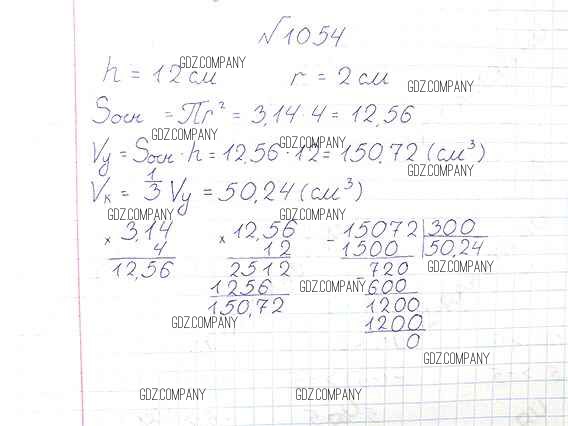 №1054
h = 12 см r = 2 см
Sосн = Пr² = 3,14 · 4 = 12,56
Vу = Sосн · h = 12,56 · 12 = 150,72 (см³)
Vк = 1/3 Vу = 50,24 (см³)
× 3,14
4
12,56
× 12,56
12
2512
1256
150,72
- 15072 | 300
1500 | 50,24
- 720
600
1200
1200
0
GDZ.COMPANY
GDZ.COMPANY
GDZ.COMPANY
GDZ.COMPANY
GDZ.COMPANY
GDZ.COMPANY
GDZ.COMPANY
GDZ.COMPANY
GDZ.COMPANY
GDZ.COMPANY
GDZ.COMPANY
GDZ.COMPANY
GDZ.COMPANY